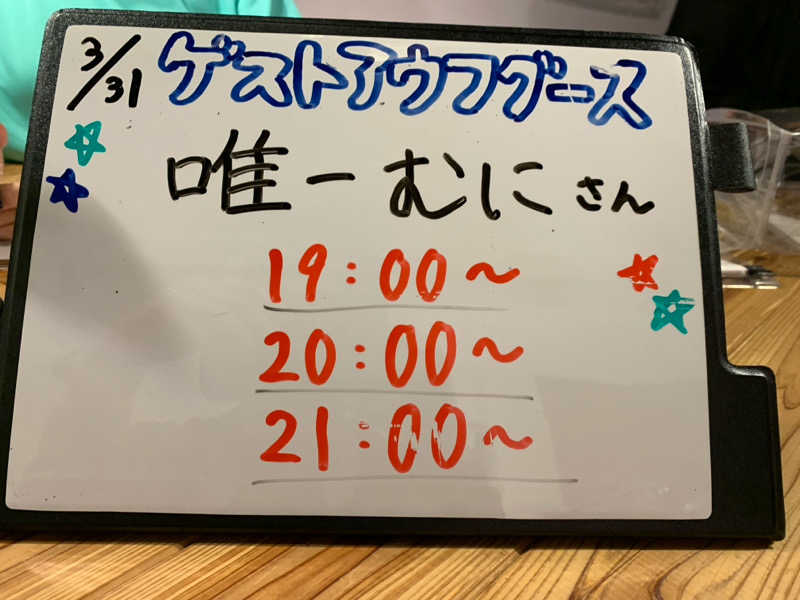 3/31 ゲストアウフグース
唯一むにさん
19:00〜
20:00〜
21:00〜